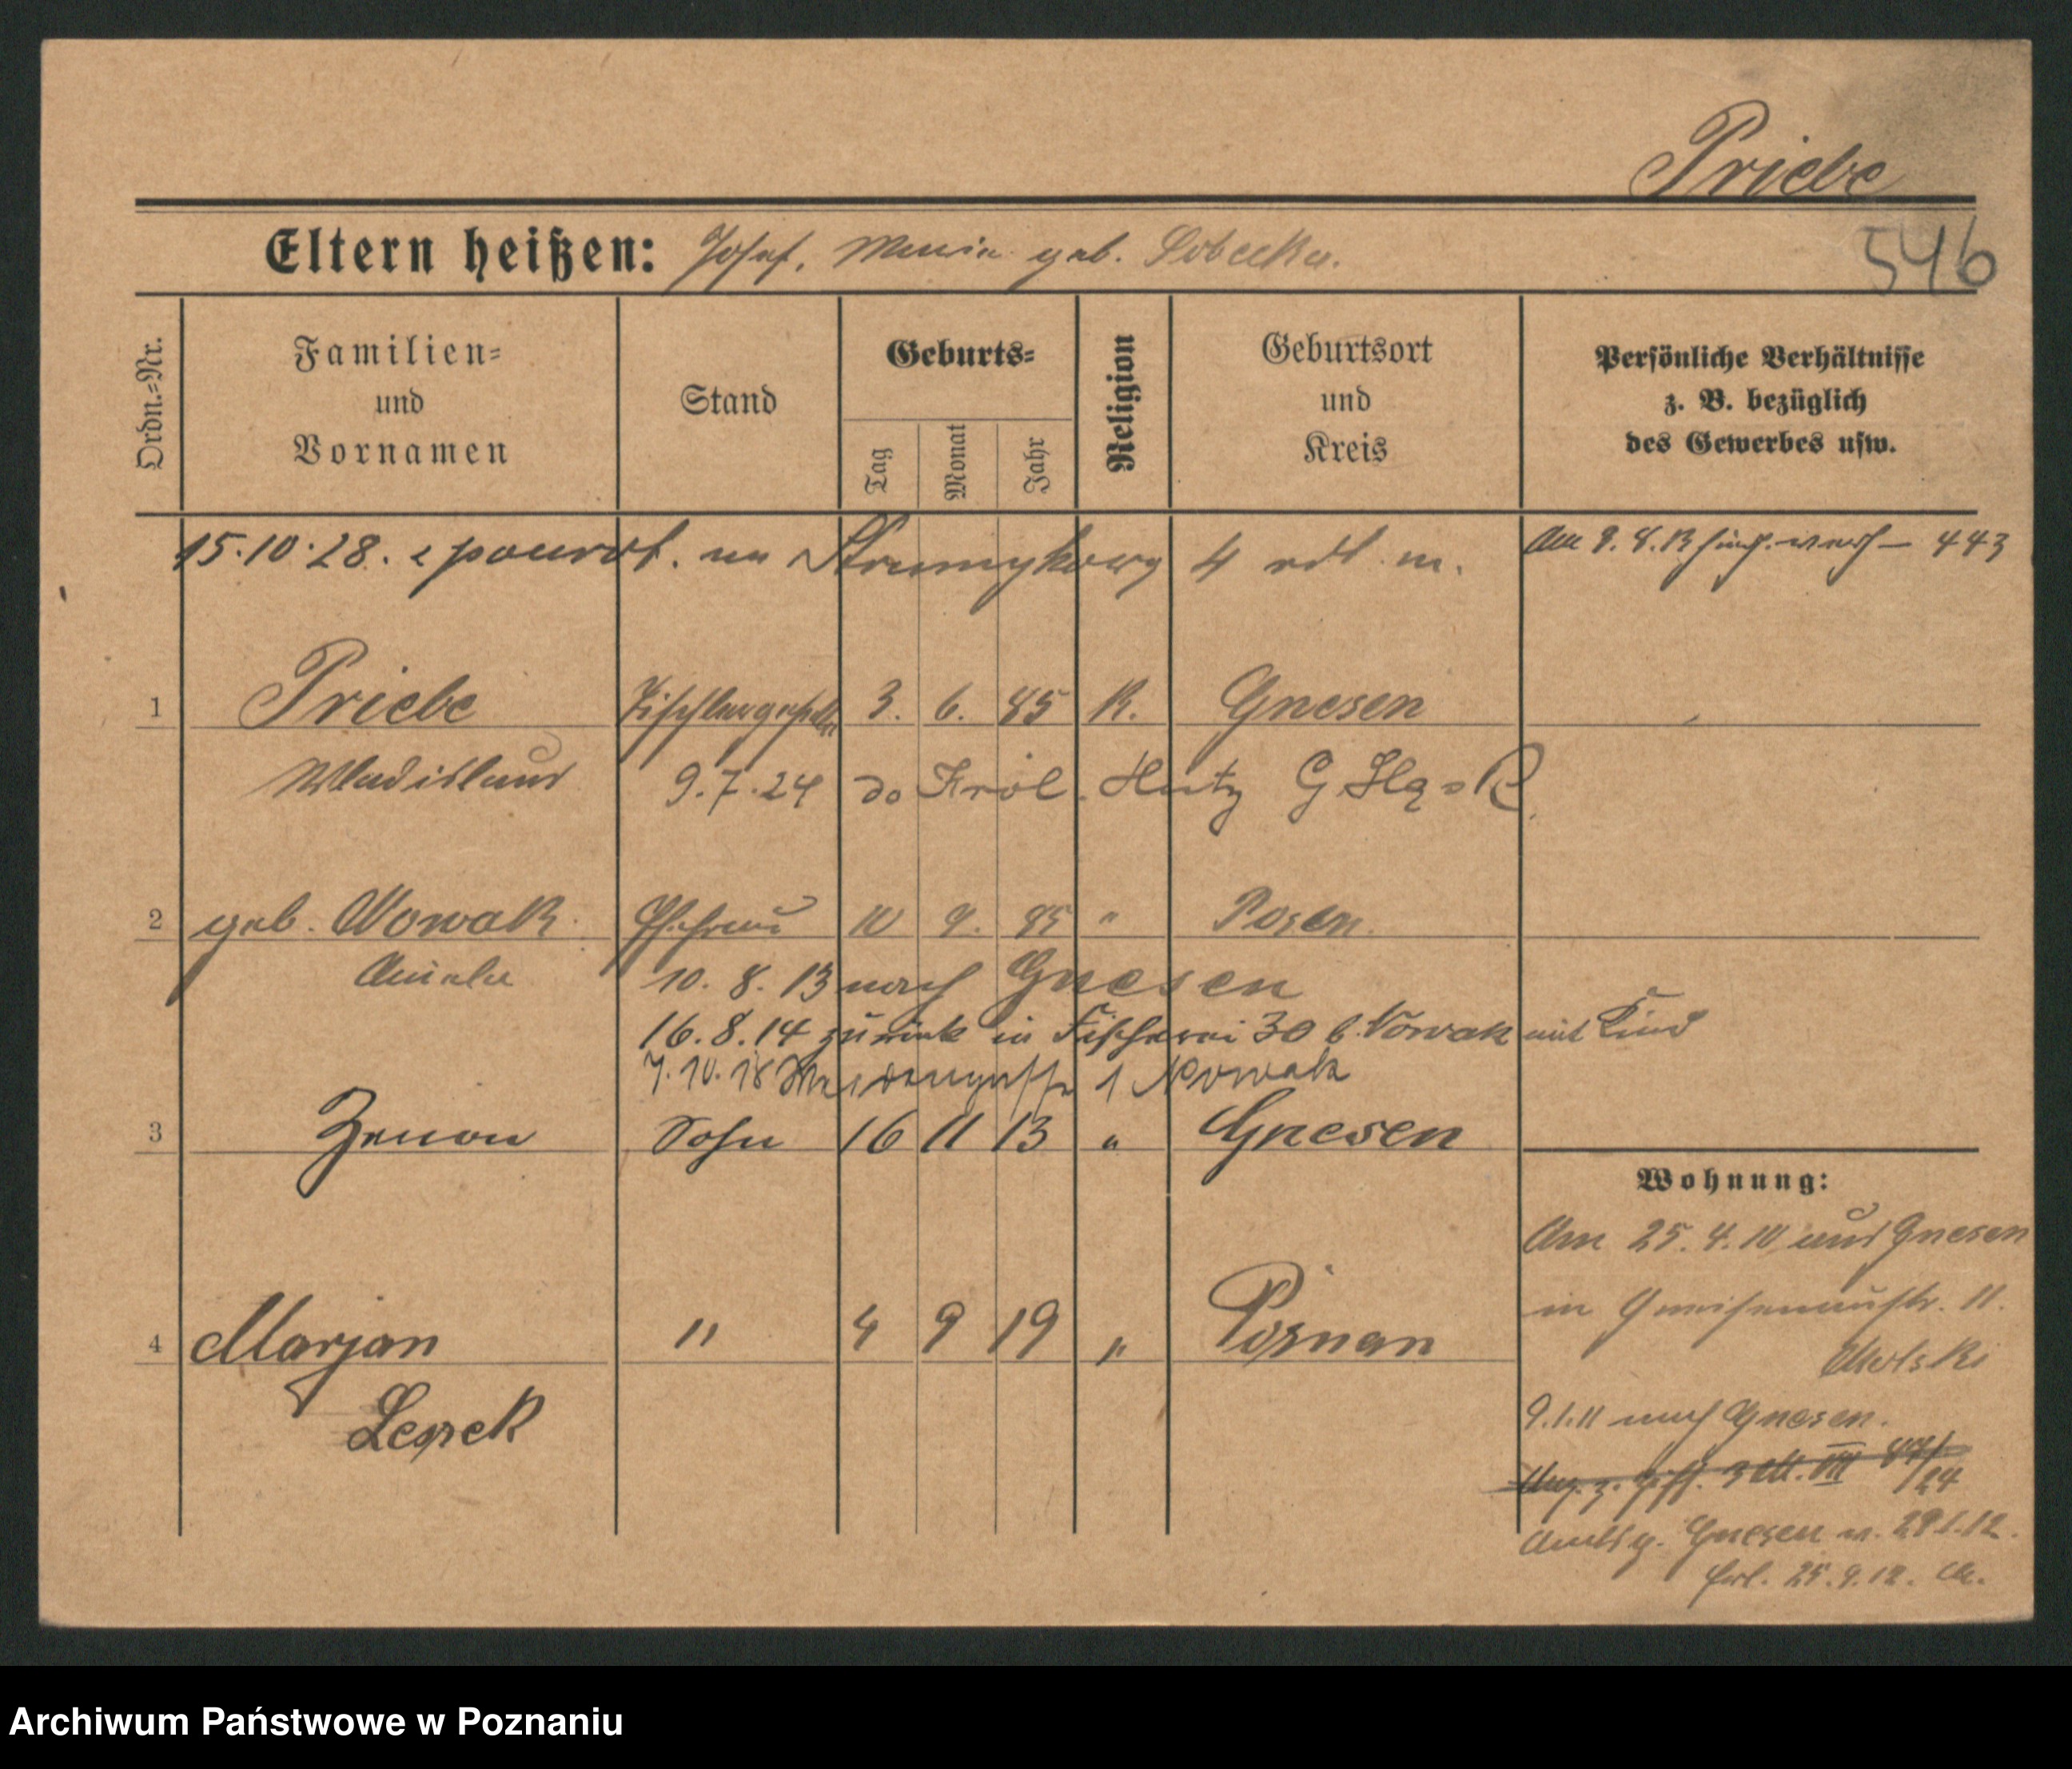 Priebe
546
Eltern heißen: Josef, Maria geb. Sobecka.
Ordn.=Nr.
Familien=
und
Vornamen
Stand
Geburts=
Tag
Monat
Jahr
Religion
Geburtsort
und
Kreis
Persönliche Verhältnisse
z. B. bezüglich
des Gewerbes usw.
15.10.28. z powrot. na Strumykowy 4 m.
443
1 Priebe Tischlergeselle 3. 6. 85 K. Gnesen
Wladislaus 9.7.24 do Król. Huty G Śląsk
2 geb. Nowak Ehefrau 10 9. 85 " Posen.
10.8.13 nach Gnesen
16.8.14 zurück in Fischerei 30 b. Nowak mit Kind
7.10.18 1 Nowak
3 Zenon Sohn 16 11 13 " Gnesen
4 Marjan " 4 9 19 " Poznan
Leszek
Wohnung:
Am 25.4.10 aus Gnesen
in Gneisenaustr. 11.
9.1.11 nach Gnesen.
Amtsg. Gnesen
25.9.12.
Archiwum Państwowe w Poznaniu